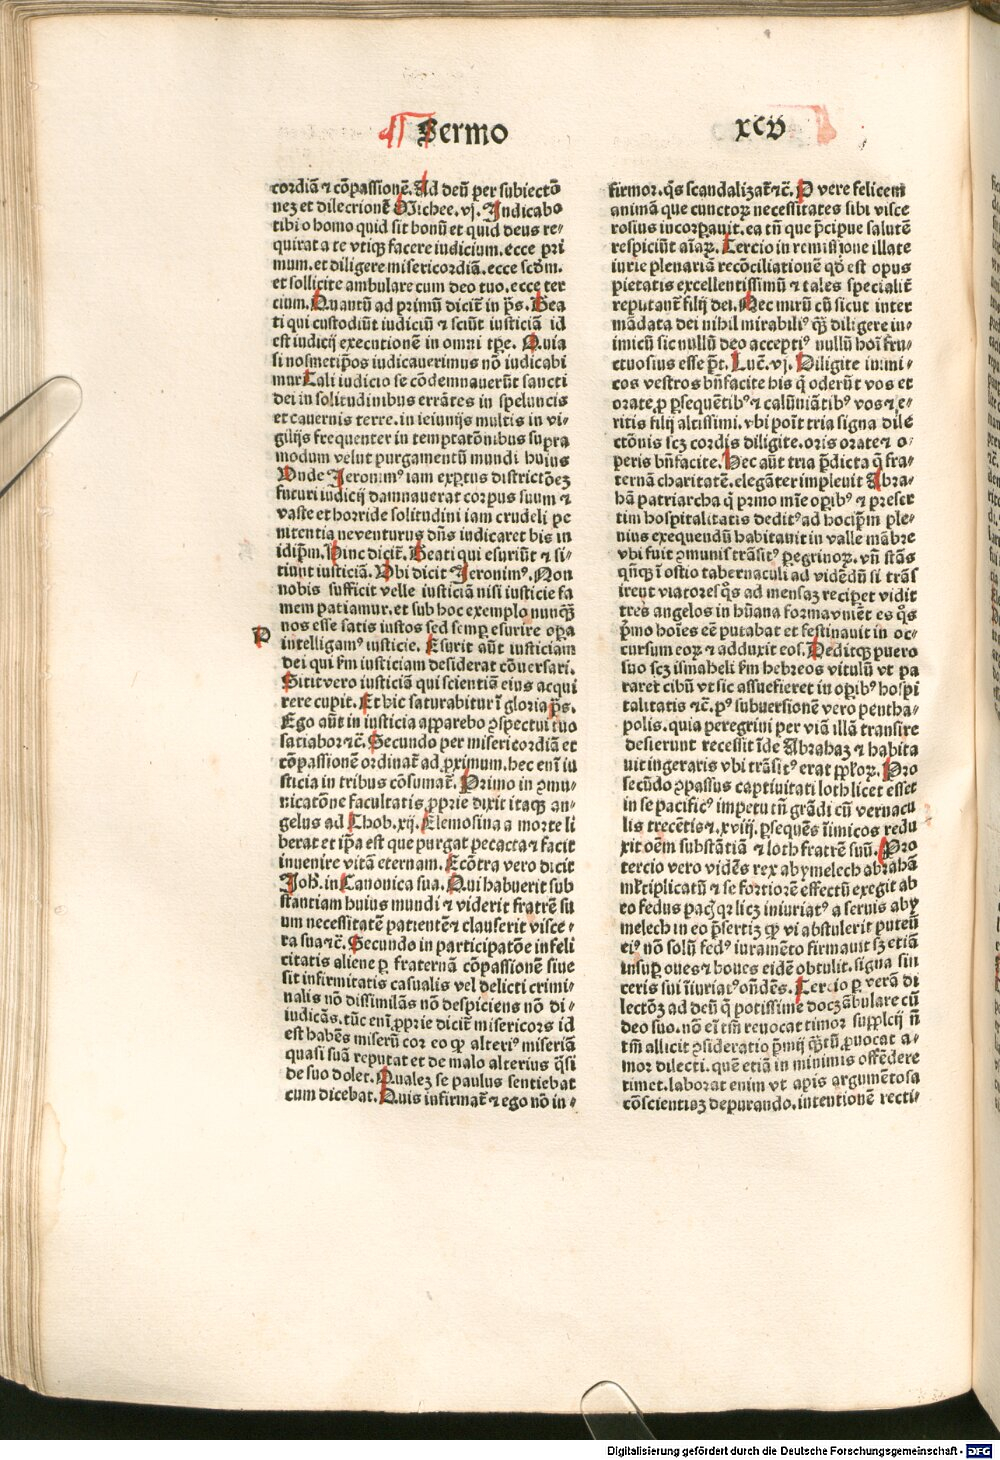 Sermo
xcv
cordiā ⁊ cōpassionē. Ad deū per subiectō
nez et dilecrionē Michee. vj. Indicabo
tibi o homo quid sit bonū et quid deus re⸗
quirat a te vtiqꝫ facere iudicium. ecce pri
mum. et diligere misericordiā. ecce scōm.
et sollicite ambulare cum deo tuo. ecce ter
cium. Quantū ad primū dicit̄ in ps̄. Bea
ti qui custodiūt iudiciū ⁊ sciūt iusticiā id
est iudicij executionē in omni tp̄e. Quia
si nosmetip̄os iudicauerimus nō iudicabi
mur Tali iudicio se cōdemnauerūt sancti
dei in solitudinibus errātes in speluncis
et cauernis terre. in ieiunijs multis in vi⸗
gilijs frequenter in temptatōnibus supra
modum velut purgamentū mundi huius
Unde Jeronimꝰ iam exꝑtus districtōeꝫ
futuri iudicij damnauerat corpus suum ⁊
vaste et horride solitudini iam crudeli pe
nitentia neventurus dn̄s iudicaret his in
idip̄m. Hinc dicit̄. Beati qui esuriūt ⁊ si⸗
tiunt iusticiā. Ubi dicit Jeronimꝰ. Non
nobis sufficit velle iusticiā nisi iusticie fa
mem patiamur. et sub hoc exemplo nunqꝫ̄
P
nos esse satis iustos sed semꝑ esurire oꝑa
intelligamꝰ iusticie. Esurit aūt iusticiam
dei qui fm̄ iusticiam desiderat cōuersari.
Sitit vero iusticiā qui scientiā eius acqui
rere cupit. Et hic saturabitur ī gloria ps̄.
Ego aūt in iusticia apparebo ꝯspectui tuo
satiabor ⁊c̄. Secundo per misericordiā et
cōpassionē ordinat̄ ad ꝓximum. hec enī iu
sticia in tribus cōsumat̄. Primo in ꝯmu⸗
nicatōne facultatis ꝓprie dixit itaqꝫ an⸗
gelus ad Thob. xij. Elemosina a morte li
berat et ip̄a est que purgat peccata ⁊ facit
inuenire vitā eternam. Ecōtra vero dicit
Joh̄. in Canonica sua. Qui habuerit sub
stantiam huius mundi ⁊ viderit fratrē su
um necessitatē patientē ⁊ clauserit visce⸗
ra sua ⁊c̄. Secundo in participatōe infeli
citatis aliene ꝑ fraternā cōpassionē siue
sit infirmitatis casualis vel delicti crimi⸗
nalis nō dissimilās nō despiciens nō di⸗
iudicās. tūc enī ꝓprie dicit̄ misericors id
est habēs miserū cor eo qꝙ alteriꝰ miseriā
quasi suā reputat et de malo alterius q̄si
de suo dolet. Qualeꝫ se paulus sentiebat
cum dicebat. Quis infirmat̄ ⁊ ego nō in⸗
firmor. q̄s scandalizat̄ ⁊c̄. O vere felicem
animā que cunctoꝝ necessitates sibi visce
rosius incorꝑauit. ea tn̄ que p̄cipue salutē
respiciūt aīaꝝ. Tercio in remissione illate
iurie plenariā recōciliationē qd̄ est opus
pietatis excellentissimū ⁊ tales specialit̄
reputant̄ filij dei. Nec mirū cū sicut inter
mādata dei nihil mirabiliꝰ qꝫ̄ diligere in⸗
imicū sic nullū deo acceptiꝰ nullū hoī fru⸗
ctuosius esse pt̄. Luc̄. vj. Diligite inimi⸗
cos vestros bn̄facite his q̄ oderūt vos et
orate ꝓ ꝑsequētibꝰ ⁊ calūniātibꝰ vos ⁊ e⸗
ritis filij altissimi. vbi poīt tria signa dile
ctōnis scꝫ cordis diligite. oris orate ⁊ o⸗
peris bn̄facite. Hec aūt tria p̄dicta q̄ fra⸗
ternā charitatē. elegāter impleuit Abra⸗
hā patriarcha q̄ pr̄mo mīe oꝑibꝰ ⁊ preser
tim hospitalitatis deditꝰ ad hocip̄m ple⸗
nius exequendū habitauit in valle mābre
vbi fuit ꝯmunis trāsitꝰ ꝑegrinoꝝ. vn̄ stās
qn̄qꝫ ī ostio tabernaculi ad vidēdū si trās
irent viatores q̄s ad mensaꝫ reciꝑet vidit
tres angelos in hūana forma venīet̄es q̄s
p̄mo hoīes eē putabat et festinauit in oc⸗
cursum eoꝝ ⁊ adduxit eos. Deditqꝫ puero
suo scꝫ ismaheli fm̄ hebreos vitulū vt pa
raret cibū vt sic assuefieret in oꝑibꝰ hospi
talitatis ⁊c̄. pꝰ subuersionē vero pentha⸗
polis. quia peregrini per viā illā transire
desierunt recessit īde Abrahaꝫ ⁊ habita
uit in geraris vbi trāsitꝰ erat ppl̄oꝝ. Pro
secūdo ꝯpassus captiuitati loth licet esset
in se pacificꝰ impetu tn̄ grādi cū vernacu
lis trecētis ⁊. xviij. ꝑsequēs īimicos redu
xit oēm substātiā ⁊ loth fratrē suū. Pro
tercio vero vidēs rex abymelech abrahā
ml̄tiplicatū ⁊ se fortiorē effectū exegit ab
eo fedus pacis̄ qr licꝫ iniuriatꝰ a seruis aby
melech in eo p̄sertiꝫ qꝙ vi abstulerit puteū
eiꝰ nō solū fedꝰ iuramēto firmauit sꝫ etiā
insuꝑ oues ⁊ boues eidē obtulit. signa sin
ceris sui īiuriatꝰ on̄dēs. Tercio ꝑ verā di
lectōꝫ ad deū q̄ potissime docꝫ ābulare cū
deo suo. nō eī tm̄ reuocat timor suppl̄cij n̄
tm̄ allicit ꝯsideratio p̄mij qꝫ̄tū ꝓuocat a⸗
mor dilecti. quē etiā in minimis offēdere
timet. laborat enim vt apis argumētosa
cōscientiaꝫ depurando. intentionē recti⸗
Digitalisierung gefördert durch die Deutsche Forschungsgemeinschaft - DFG